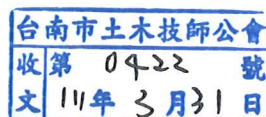 台南市土木技師公會
收文 第 0422 號
111年 3月31日